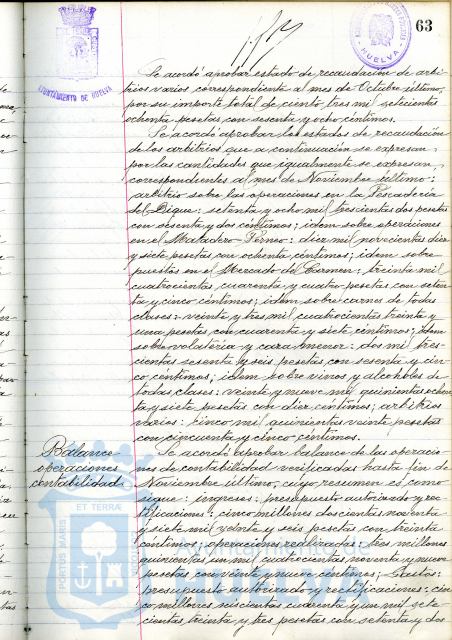 63
AYUNTAMIENTO DE HUELVA
HUELVA
Se acordó aprobar estado de recaudación de arbi-
trios varios correspondiente al mes de Octubre último,
por su importe total de ciento tres mil setecientas
ochenta pesetas con sesenta y ocho céntimos.
Se acordó aprobar los estados de recaudación
de los arbitrios que a continuación se expresan,
por las cantidades que igualmente se expresan,
correspondientes al mes de Noviembre último:
arbitrio sobre las operaciones en la Pescadería
del Dique: setenta y ocho mil trescientas dos pesetas
con sesenta y dos céntimos; idem sobre operaciones
en el Matadero-Perneo: diez mil novecientas diez
y siete pesetas con ochenta céntimos; idem sobre
puestos en el Mercado del Carmen: treinta mil
cuatrocientas cuarenta y cuatro pesetas con seten-
ta y cinco céntimos; idem sobre carnes de todas
clases: veinte y tres mil cuatrocientas treinta y
una pesetas con cuarenta y siete céntimos; idem
sobre volatería y caza menor: dos mil tres-
cientas sesenta y seis pesetas con sesenta y cin-
co céntimos; idem sobre vinos y alcoholes de
todas clases: veinte y nueve mil quinientas ochen-
ta y siete pesetas con diez céntimos; arbitrios
varios: cinco mil quinientas veinte pesetas
con cincuenta y cinco céntimos.
Balance
operaciones
contabilidad
Se acordó aprobar balance de las operacio-
nes de contabilidad verificadas hasta fin de
Noviembre último, cuyo resumen es como
sigue: ingresos: presupuesto autorizado y rec-
tificaciones: cinco millones doscientas noventa
y siete mil veinte y seis pesetas con treinta
céntimos; operaciones realizadas: tres millones
quinientas un mil cuatrocientas noventa y nueve
pesetas con veinte y nueve céntimos; Gastos:
presupuesto autorizado y rectificaciones: cin-
co millones seiscientas cuarenta y un mil sete-
cientas treinta y tres pesetas con setenta y dos
PORTUS MARIS ET TERRAE
Ayuntamiento de